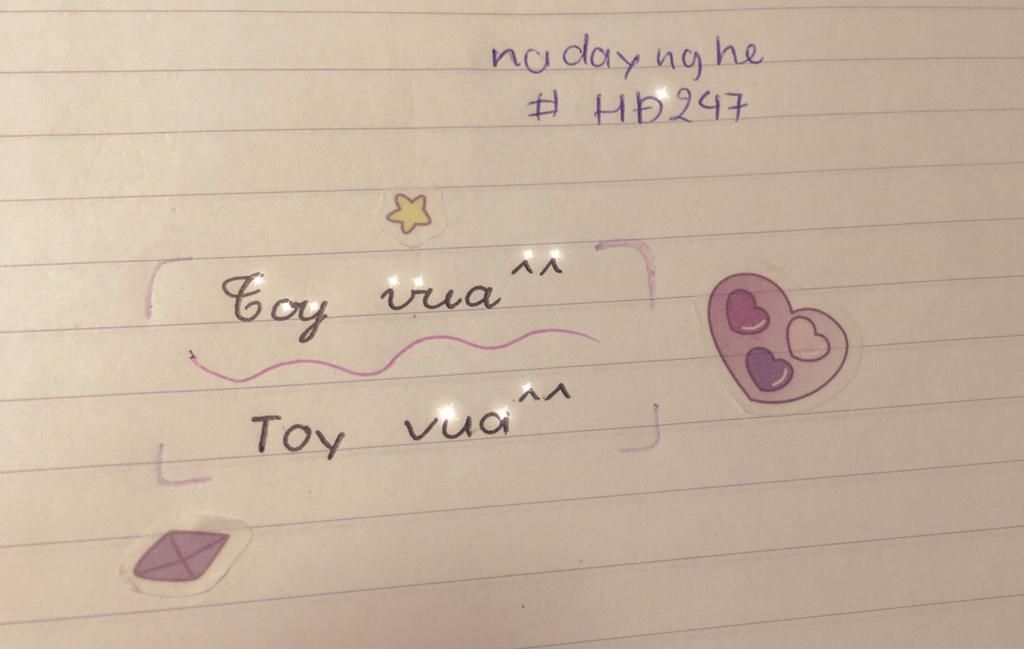 na day nghe
# HĐ247
Toy vua^^
Toy vua^^